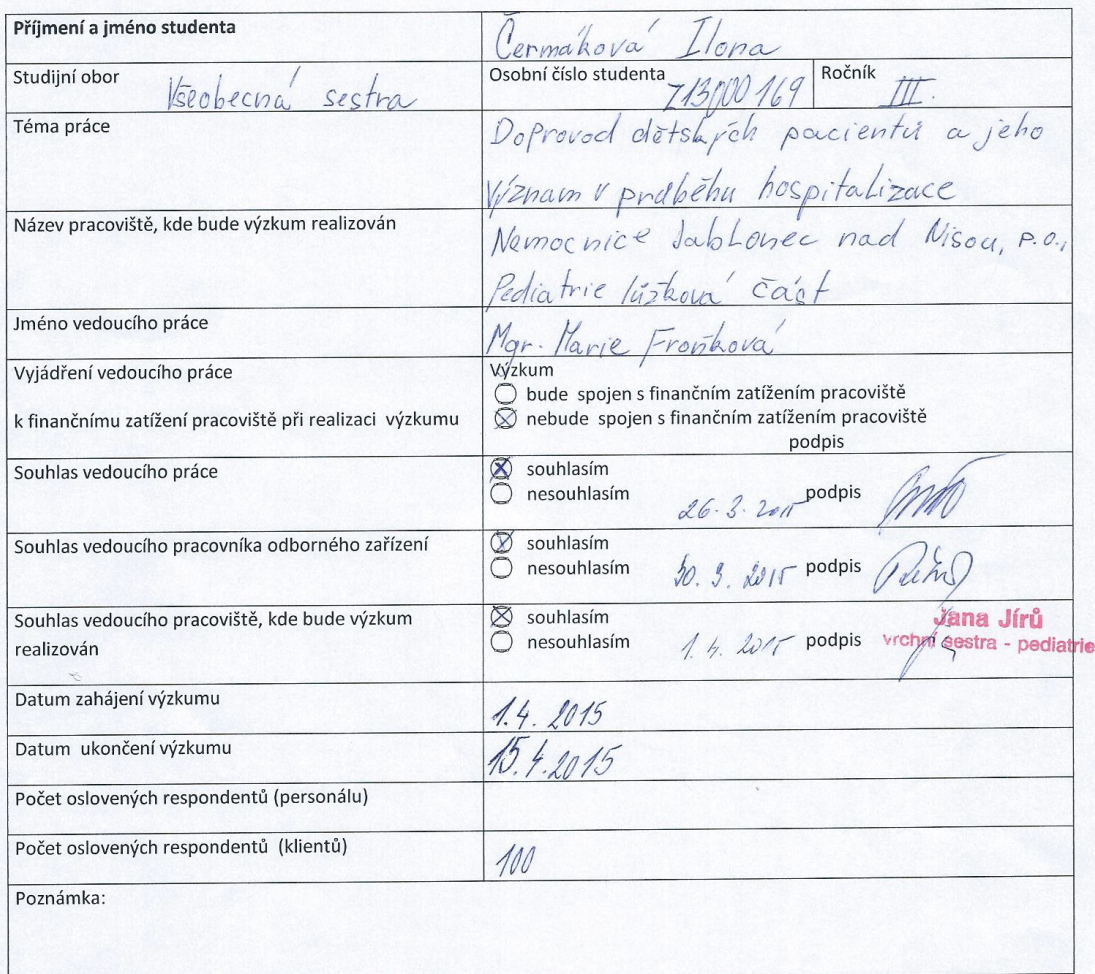 Příjmení a jméno studenta
Čermáková Ilona
Studijní obor
Všeobecná sestra
Osobní číslo studenta
Ročník
III.
Téma práce
Doprovod dětských pacientů a jeho
význam v průběhu hospitalizace
Název pracoviště, kde bude výzkum realizován
Nemocnice Jablonec nad Nisou, p.o.,
Pediatrie lůžková část
Jméno vedoucího práce
Mgr. Marie Froňková
Vyjádření vedoucího práce
k finančnímu zatížení pracoviště při realizaci výzkumu
Výzkum
bude spojen s finančním zatížením pracoviště
nebude spojen s finančním zatížením pracoviště
podpis
Souhlas vedoucího práce
souhlasím
nesouhlasím
26. 3. 2015 podpis
Souhlas vedoucího pracovníka odborného zařízení
souhlasím
nesouhlasím
30. 3. 2015 podpis
Souhlas vedoucího pracoviště, kde bude výzkum
realizován
souhlasím
nesouhlasím
1. 4. 2015 podpis
Jana Jírů
vrchní sestra - pediatrie
Datum zahájení výzkumu
1.4. 2015
Datum ukončení výzkumu
15.4.2015
Počet oslovených respondentů (personálu)
Počet oslovených respondentů (klientů)
100
Poznámka: